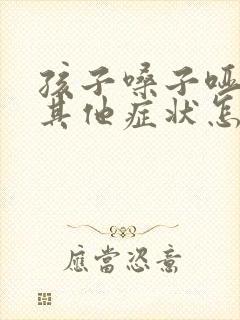 孩子嗓子哑
其他症状怎
應當恣意